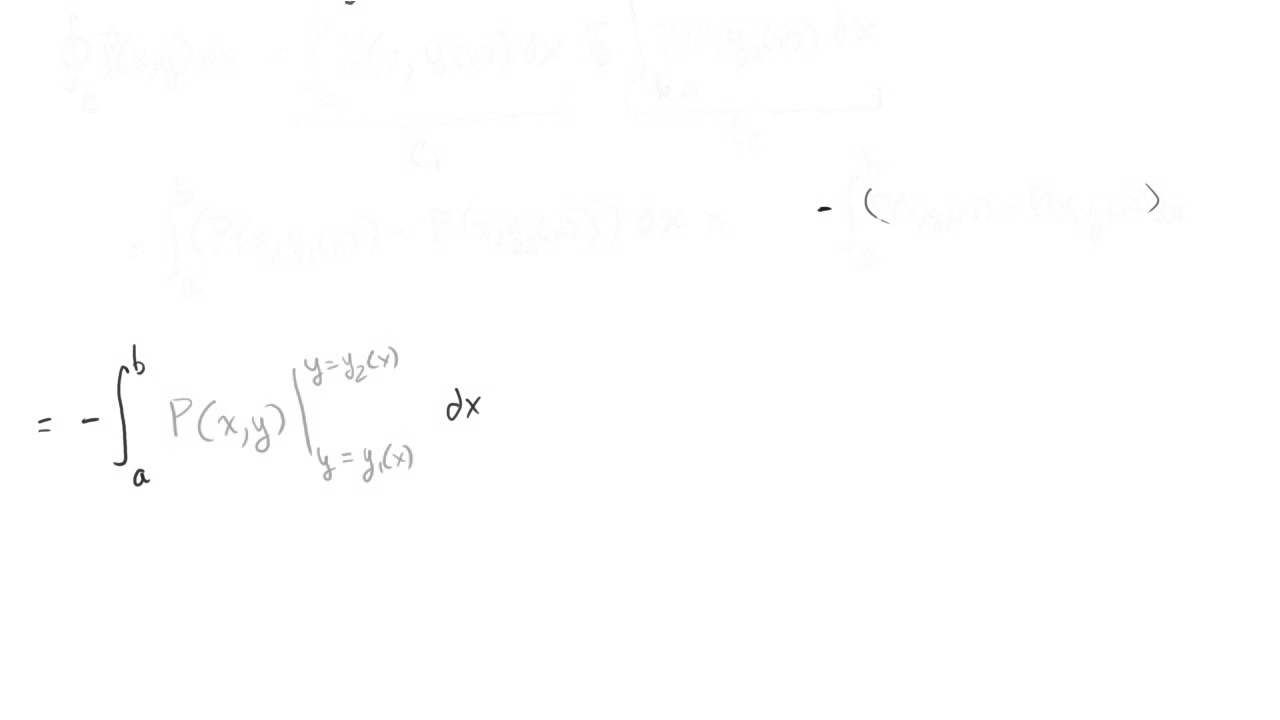 ∮_C P(x,y) dx = ∫ P(x, y₁(x)) dx - ∫ P(x, y₂(x)) dx
C₁ C₂
= ∫_a^b (P(x, y₁(x)) - P(x, y₂(x))) dx = - ( ∫_a^b P(x, y₂(x)) - P(x, y₁(x)) dx )
= - ∫_a^b P(x,y) |_{y = y₁(x)}^{y = y₂(x)} dx